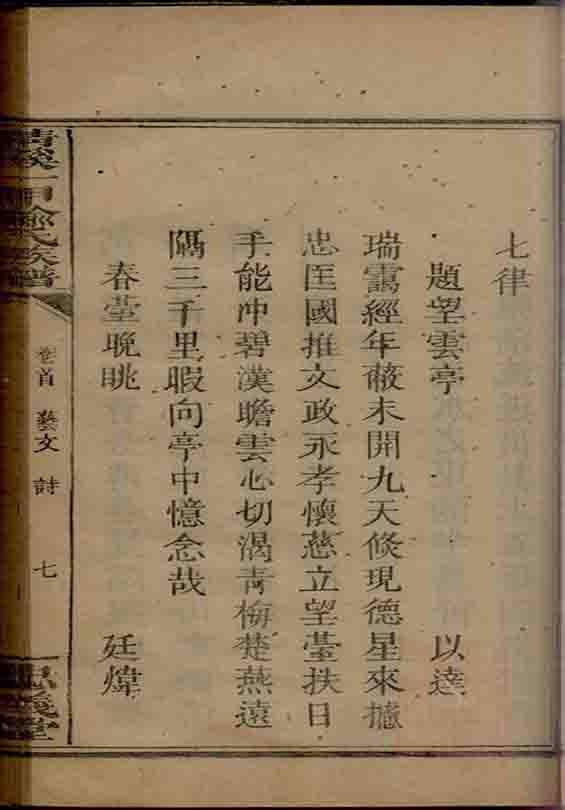 七律
題望雲亭 以達
瑞靄經年蔽未開九天倏現德星來攄
忠匡國推文政永孝懷慈立望臺扶日
手能冲碧漢瞻雲心切渴青梅楚燕遠
隔三千里暇向亭中憶念哉
春臺晚眺 廷煒
氏族譜
卷首 藝文 詩 七
堂